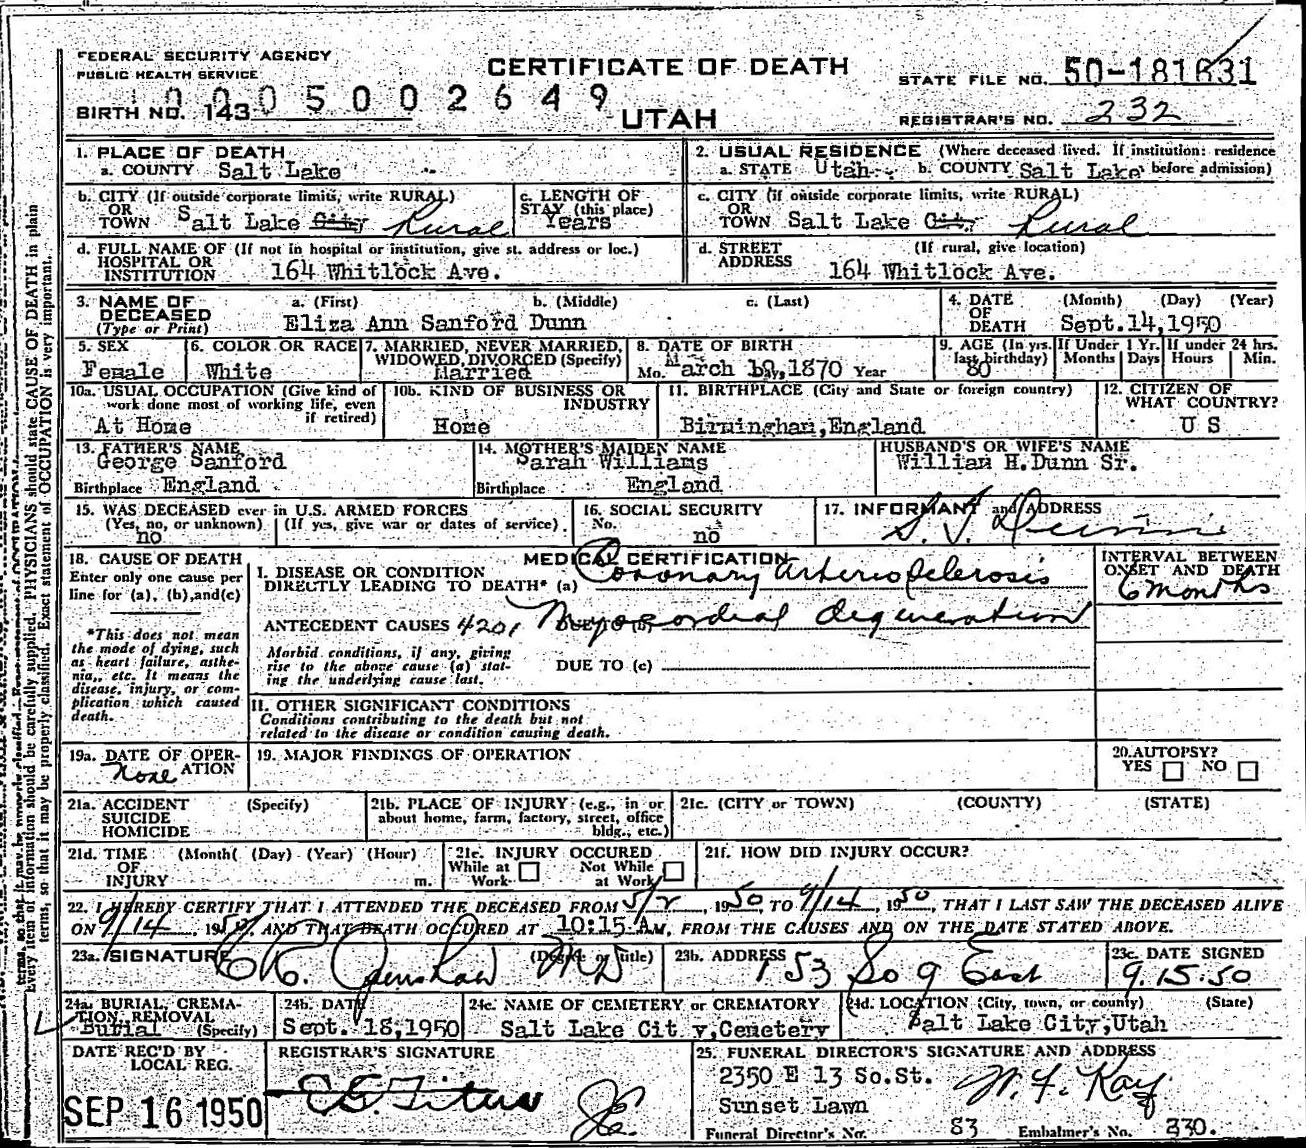 FEDERAL SECURITY AGENCY
PUBLIC HEALTH SERVICE
CERTIFICATE OF DEATH
STATE FILE NO. 50-181631
0005002649
BIRTH NO. 143
UTAH
REGISTRAR'S NO. 232
1. PLACE OF DEATH
a. COUNTY Salt Lake
2. USUAL RESIDENCE (Where deceased lived. If institution: residence
a. STATE Utah b. COUNTY Salt Lake before admission)
b. CITY (If outside corporate limits, write RURAL)
OR
TOWN Salt Lake City Rural
c. LENGTH OF
STAY (this place)
Years
c. CITY (if outside corporate limits, write RURAL)
OR
TOWN Salt Lake Cit. Rural
d. FULL NAME OF (If not in hospital or institution, give st. address or loc.)
HOSPITAL OR
INSTITUTION 164 Whitlock Ave.
d. STREET (If rural, give location)
ADDRESS 164 Whitlock Ave.
3. NAME OF
DECEASED
(Type or Print)
a. (First) b. (Middle) c. (Last)
Eliza Ann Sanford Dunn
4. DATE (Month) (Day) (Year)
OF
DEATH Sept.14,1950
5. SEX
Female
6. COLOR OR RACE
White
7. MARRIED, NEVER MARRIED,
WIDOWED, DIVORCED (Specify)
Married
8. DATE OF BIRTH
Mo. March 19,1870 Year
9. AGE (In yrs.
last birthday)
80
If Under 1 Yr.
Months Days
If under 24 hrs.
Hours Min.
10a. USUAL OCCUPATION (Give kind of
work done most of working life, even
if retired)
At Home
10b. KIND OF BUSINESS OR
INDUSTRY
Home
11. BIRTHPLACE (City and State or foreign country)
Birmingham,England
12. CITIZEN OF
WHAT COUNTRY?
U S
13. FATHER'S NAME
George Sanford
Birthplace England
14. MOTHER'S MAIDEN NAME
Sarah Williams
Birthplace England
HUSBAND'S OR WIFE'S NAME
William H.Dunn Sr.
15. WAS DECEASED ever in U.S. ARMED FORCES
(Yes, no, or unknown) (If yes, give war or dates of service)
no
16. SOCIAL SECURITY
No.
no
17. INFORMANT and ADDRESS
18. CAUSE OF DEATH
Enter only one cause per
line for (a), (b),and(c)
*This does not mean
the mode of dying, such
as heart failure, asthe-
nia, etc. It means the
disease, injury, or com-
plication which caused
death.
MEDICAL CERTIFICATION
I. DISEASE OR CONDITION
DIRECTLY LEADING TO DEATH* (a) Coronary arteriosclerosis
ANTECEDENT CAUSES 4201 Myocardial degeneration
Morbid conditions, if any, giving
rise to the above cause (a) stat-
ing the underlying cause last.
DUE TO (c)
II. OTHER SIGNIFICANT CONDITIONS
Conditions contributing to the death but not
related to the disease or condition causing death.
INTERVAL BETWEEN
ONSET AND DEATH
6 months
19a. DATE OF OPER-
ATION
None
19. MAJOR FINDINGS OF OPERATION
20. AUTOPSY?
YES NO
21a. ACCIDENT (Specify)
SUICIDE
HOMICIDE
21b. PLACE OF INJURY (e.g., in or
about home, farm, factory, street, office
bldg., etc.)
21c. (CITY or TOWN) (COUNTY) (STATE)
21d. TIME (Month( (Day) (Year) (Hour)
OF
INJURY m.
21e. INJURY OCCURED
While at Work Not While at Work
21f. HOW DID INJURY OCCUR?
22. I HEREBY CERTIFY THAT I ATTENDED THE DECEASED FROM 5/2, 1950, TO 9/14, 1950, THAT I LAST SAW THE DECEASED ALIVE
ON 9/14, 1950, AND THAT DEATH OCCURED AT 10:15 A.M., FROM THE CAUSES AND ON THE DATE STATED ABOVE.
23a. SIGNATURE (Degree or title) MD
23b. ADDRESS 153 So 9 East
23c. DATE SIGNED
9.15.50
24a. BURIAL, CREMA-
TION, REMOVAL
Burial (Specify)
24b. DATE
Sept. 18,1950
24c. NAME OF CEMETERY or CREMATORY
Salt Lake Cit y,Cemetery
24d. LOCATION (City, town, or county) (State)
Salt Lake City,Utah
DATE REC'D BY
LOCAL REG.
SEP 16 1950
REGISTRAR'S SIGNATURE
25. FUNERAL DIRECTOR'S SIGNATURE AND ADDRESS
2350 E 13 So.St.
Sunset Lawn
Funeral Director's No. 83 Embalmer's No. 330.
Every item of information should be carefully supplied. PHYSICIANS should state CAUSE OF DEATH in plain
terms, so that it may be properly classified. Exact statement of OCCUPATION is very important.